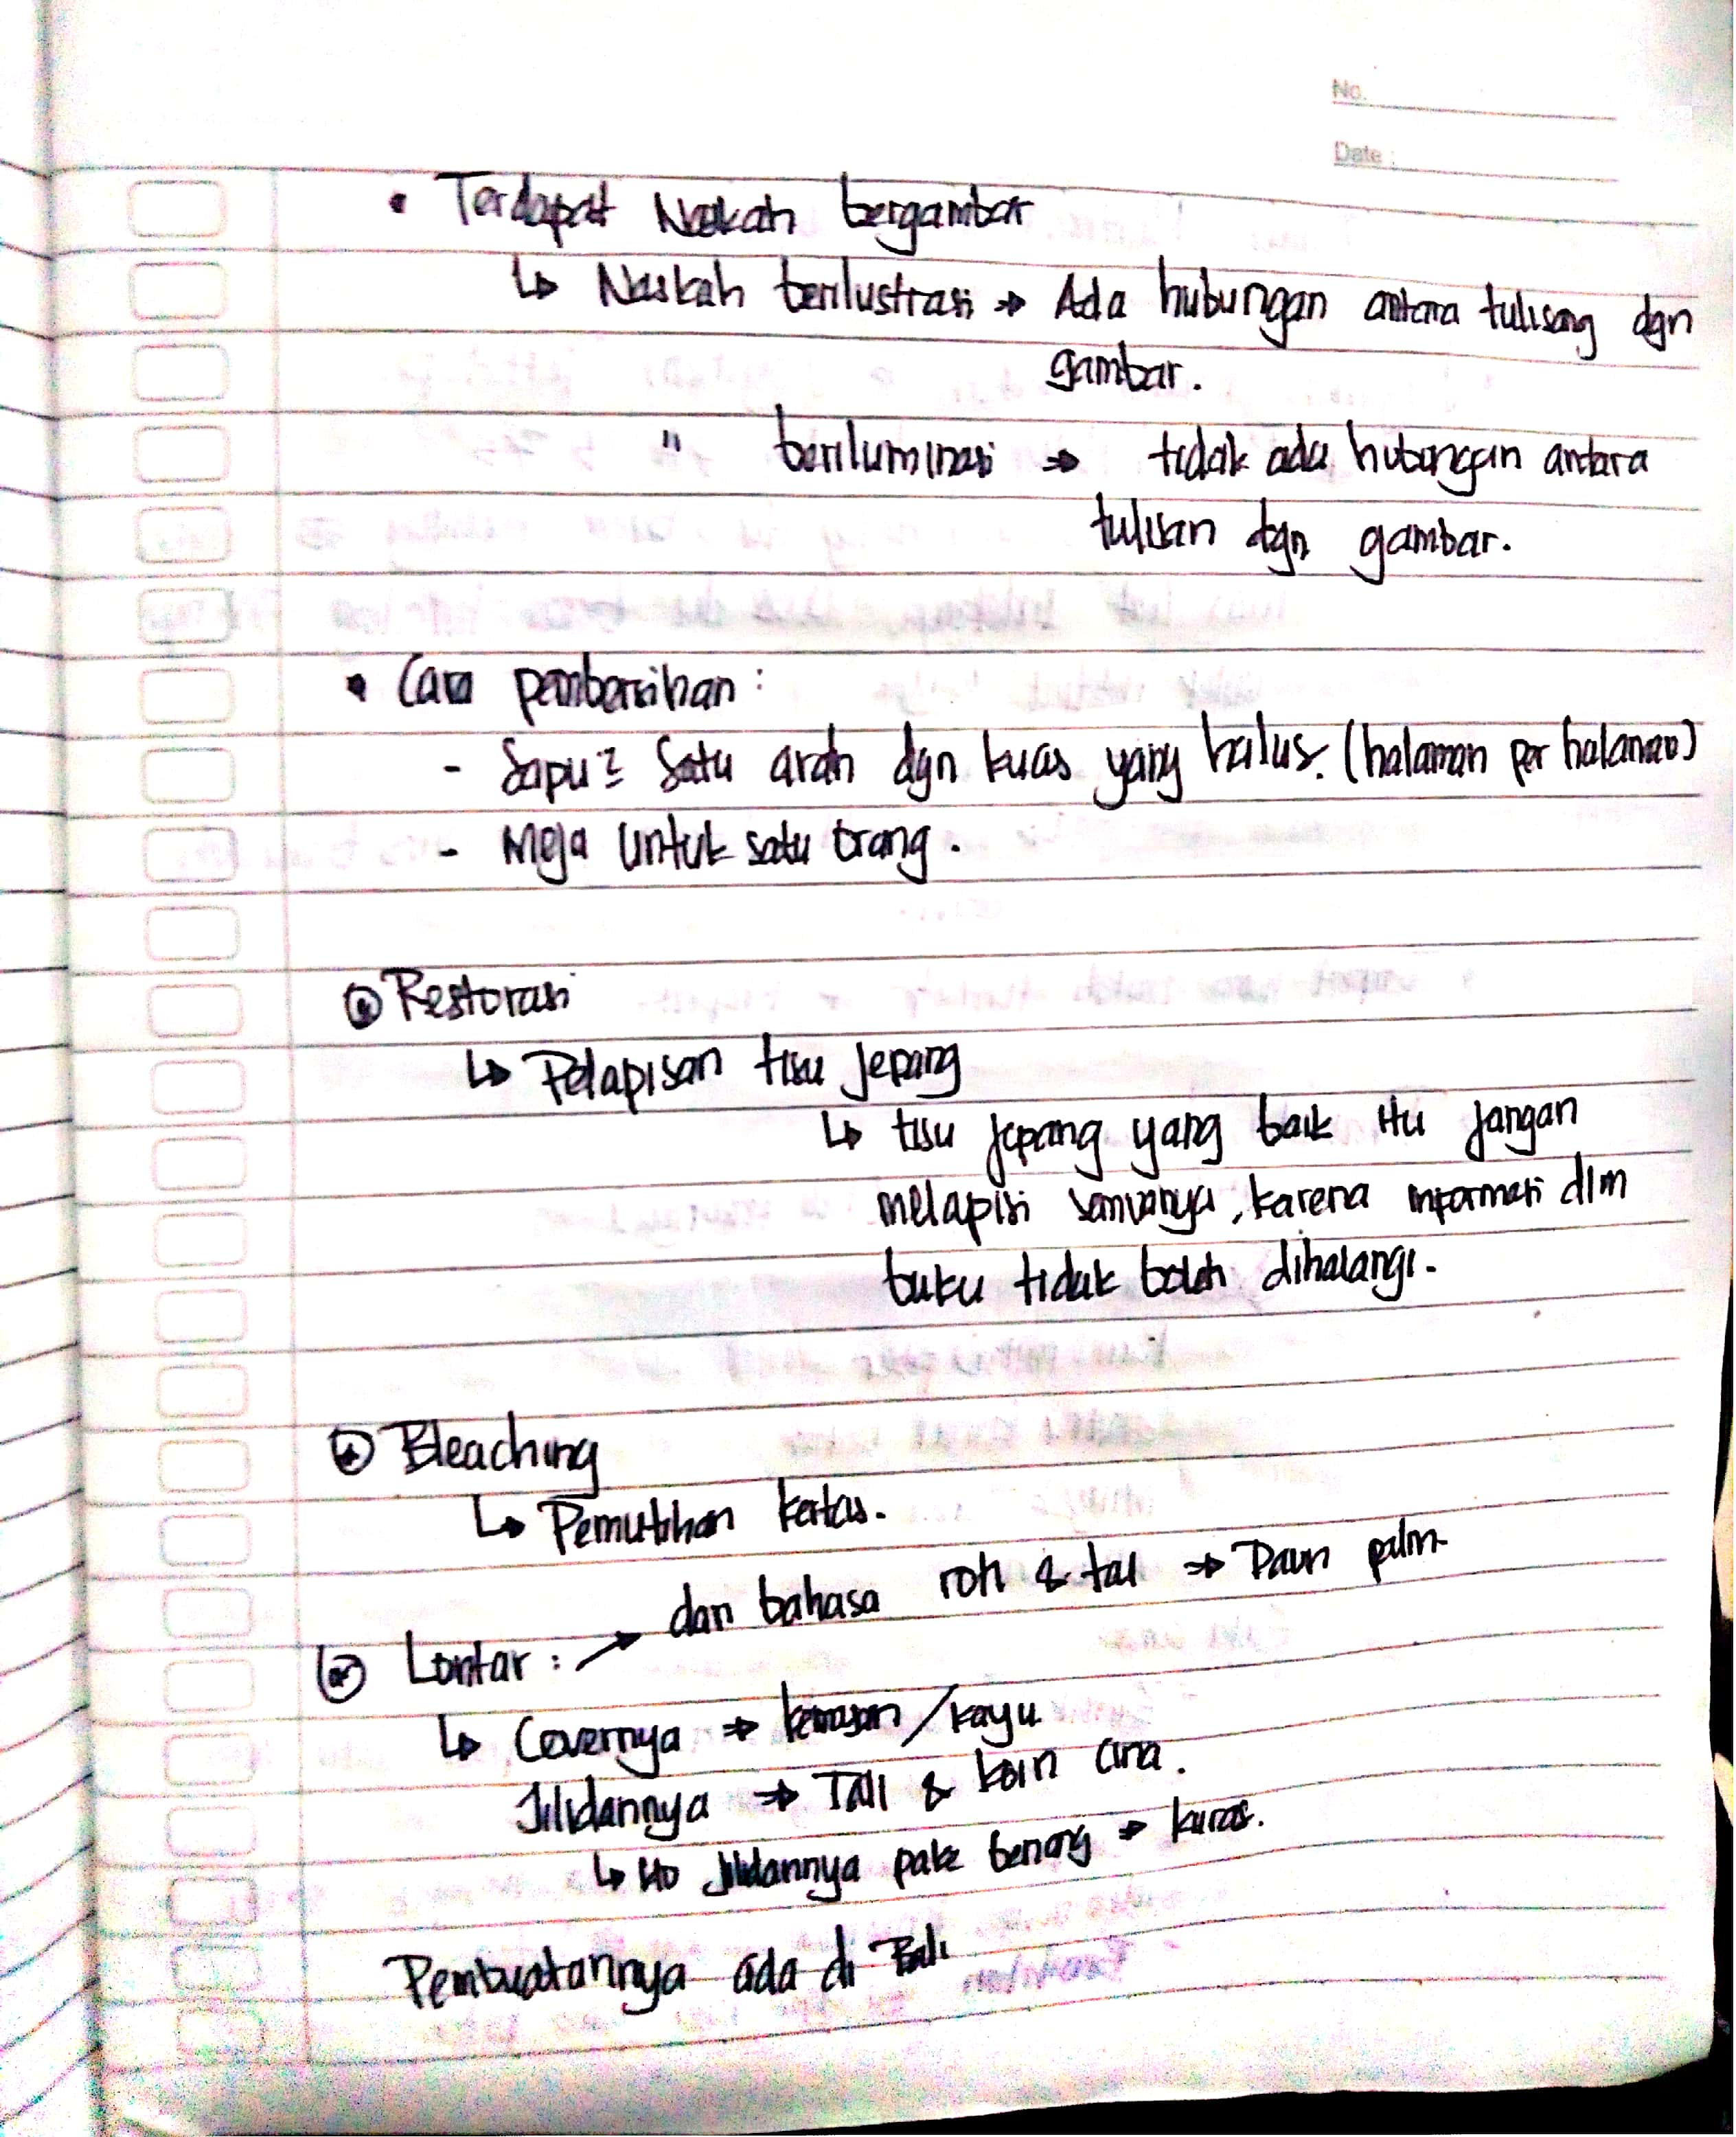 No.
Date :
• Terdapat Naskah bergambar
↳ Naskah berilustrasi ⇒ Ada hubungan antara tulisang dgn
gambar.
" beriluminasi ⇒ tidak ada hubungan antara
tulisan dgn gambar.
• Cara pembersihan :
- Sapu2 satu arah dgn kuas yang halus. (halaman per halaman)
- Meja untuk satu orang.
Restorasi
↳ Pelapisan tisu Jepang
↳ tisu Jepang yang baik itu jangan
melapisi semuanya, karena informasi dlm
buku tidak boleh dihalangi.
Bleaching
↳ Pemutihan kertas.
dari bahasa ron & tal ⇒ Daun palm
Lontar : →
↳ Covernya ⇒ /kayu
Jilidannya ⇒ Tali & koin cina.
↳ Jilidannya pake benang ⇒ kuras.
Pembuatannya ada di Bali